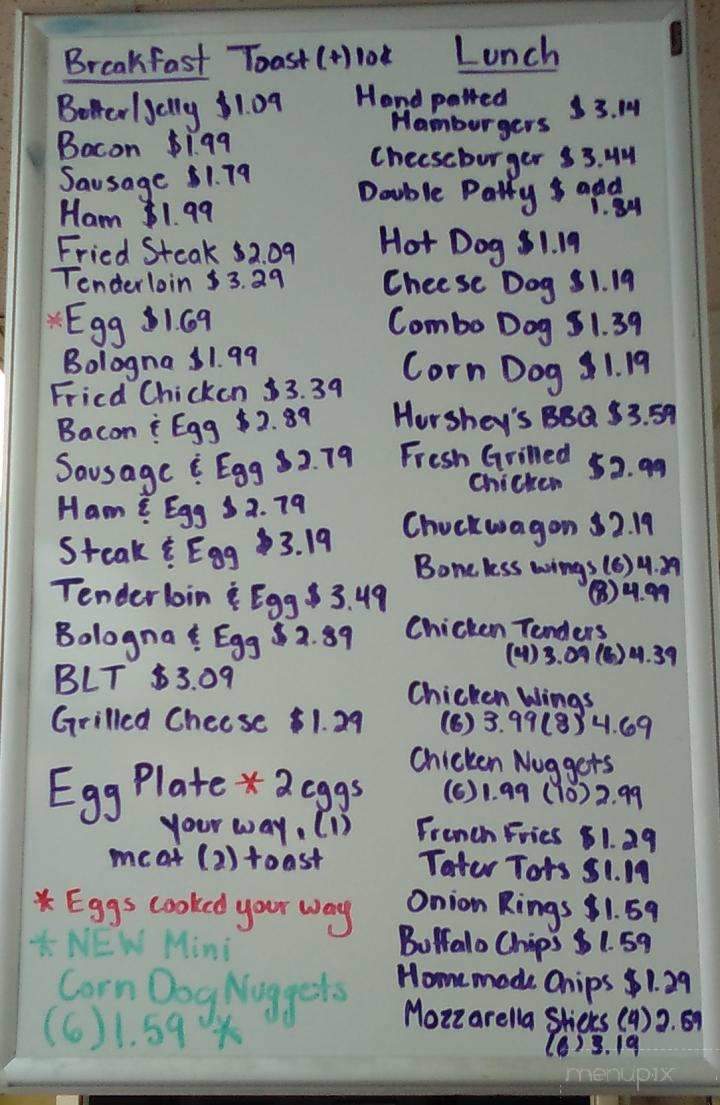 Breakfast Toast (+) 10¢
Butter/Jelly $1.09
Bacon $1.99
Sausage $1.79
Ham $1.99
Fried Steak $2.09
Tenderloin $3.29
*Egg $1.69
Bologna $1.99
Fried Chicken $3.39
Bacon & Egg $2.89
Sausage & Egg $2.79
Ham & Egg $2.79
Steak & Egg $3.19
Tenderloin & Egg $3.49
Bologna & Egg $2.89
BLT $3.09
Grilled Cheese $1.29
Egg Plate * 2 eggs
your way, (1)
meat (2) toast
* Eggs cooked your way
* NEW Mini
Corn Dog Nuggets
(6) 1.59 *
Lunch
Hand patted
Hamburgers $3.14
Cheeseburger $3.44
Double Patty $ add
1.84
Hot Dog $1.19
Cheese Dog $1.19
Combo Dog $1.39
Corn Dog $1.19
Hurshey's BBQ $3.59
Fresh Grilled
Chicken $2.99
Chuckwagon $2.19
Boneless wings (6) 4.29
(8) 4.99
Chicken Tenders
(4) 3.09 (6) 4.39
Chicken Wings
(6) 3.99 (8) 4.69
Chicken Nuggets
(6) 1.99 (10) 2.99
French Fries $1.29
Tater Tots $1.19
Onion Rings $1.59
Buffalo Chips $1.59
Homemade Chips $1.29
Mozzarella Sticks (4) 2.59
(6) 3.19
menupix